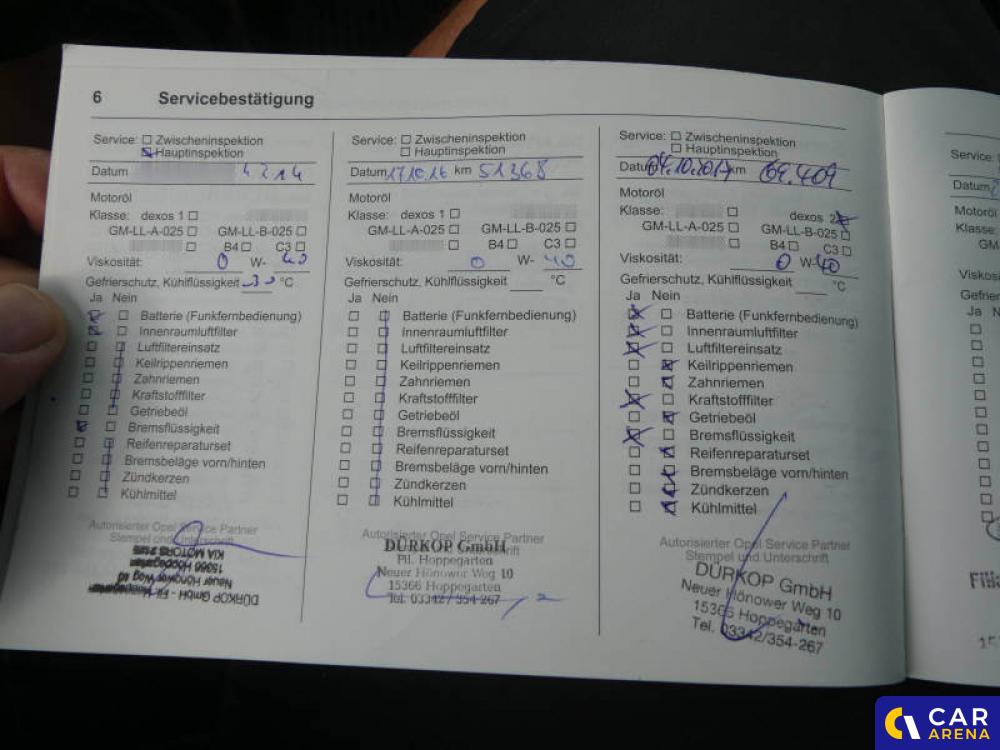 6 Servicebestätigung
Service: Zwischeninspektion
Hauptinspektion
Datum 4.2.14
Motoröl
Klasse: dexos 1
GM-LL-A-025 GM-LL-B-025
B4 C3
Viskosität: 0 W- 40
Gefrierschutz, Kühlflüssigkeit -30 °C
Ja Nein
Batterie (Funkfernbedienung)
Innenraumluftfilter
Luftfiltereinsatz
Keilrippenriemen
Zahnriemen
Kraftstofffilter
Getriebeöl
Bremsflüssigkeit
Reifenreparaturset
Bremsbeläge vorn/hinten
Zündkerzen
Kühlmittel
Autorisierter Opel Service Partner
Stempel und Unterschrift
DÜRKOP GmbH - Fil.
Neuer Hönower Weg
15366 Hoppegarten
KIA MOTORS
Service: Zwischeninspektion
Hauptinspektion
Datum 17.10.16 km 51368
Motoröl
Klasse: dexos 1
GM-LL-A-025 GM-LL-B-025
B4 C3
Viskosität: 0 W- 40
Gefrierschutz, Kühlflüssigkeit °C
Ja Nein
Batterie (Funkfernbedienung)
Innenraumluftfilter
Luftfiltereinsatz
Keilrippenriemen
Zahnriemen
Kraftstofffilter
Getriebeöl
Bremsflüssigkeit
Reifenreparaturset
Bremsbeläge vorn/hinten
Zündkerzen
Kühlmittel
Autorisierter Opel Service Partner
Stempel und Unterschrift
DÜRKOP GmbH
Fil. Hoppegarten
Neuer Hönower Weg 10
15366 Hoppegarten
Tel. 03342 / 354-267
Service: Zwischeninspektion
Hauptinspektion
Datum 04.10.2017 km 69.409
Motoröl
Klasse: dexos 2
GM-LL-A-025 GM-LL-B-025
B4 C3
Viskosität: 0 W- 40
Gefrierschutz, Kühlflüssigkeit °C
Ja Nein
Batterie (Funkfernbedienung)
Innenraumluftfilter
Luftfiltereinsatz
Keilrippenriemen
Zahnriemen
Kraftstofffilter
Getriebeöl
Bremsflüssigkeit
Reifenreparaturset
Bremsbeläge vorn/hinten
Zündkerzen
Kühlmittel
Autorisierter Opel Service Partner
Stempel und Unterschrift
DÜRKOP GmbH
Neuer Hönower Weg 10
15366 Hoppegarten
Tel. 03342/354-267
Service:
Datum
Motoröl
Klasse:
GM
Ja
CAR
ARENA